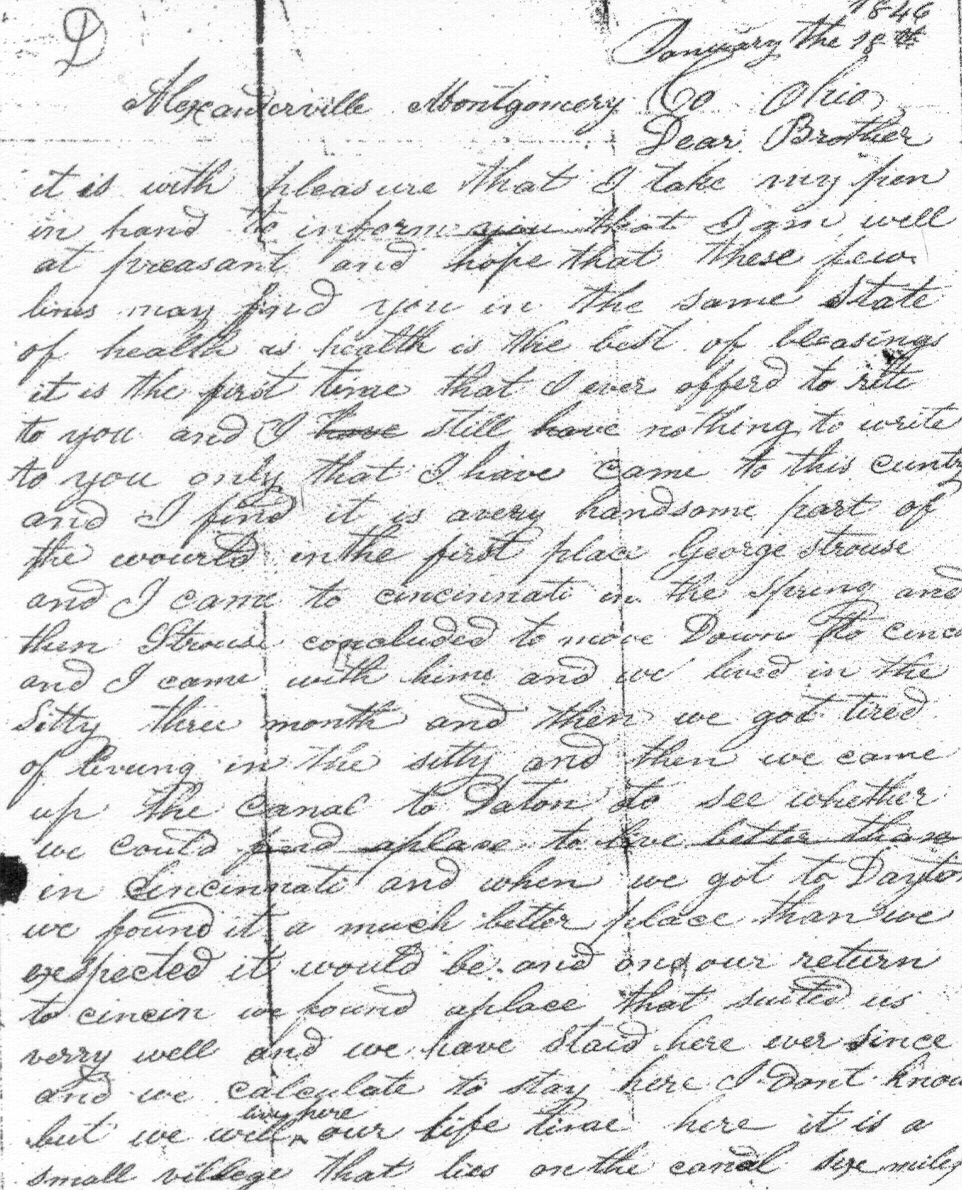 D
1846
January the 18th
Alexanderville Montgomery Co Ohio
Dear Brother
it is with pleasure that I take my pen
in hand to inform you that I am well
at preasant and hope that these few
lines may find you in the same State
of health as health is the best of bleasings
it is the first time that I ever offerd to rite
to you and I have still have nothing to write
to you only that I have came to this cuntry
and I find it is avery handsome part of
the wourld in the first place George Strouse
and I came to cincinnati in the Spring and
then Strouse concluded to move Down to cinci
and I came with hime and we lived in the
Sitty three month and then we got tired
of liveung in the sitty and then we came
up the canal to Daton to see whether
we could find aplace to live better than
in Cincinnati and when we got to Dayton
we found it a much better place than we
exspected it would be and on our return
to cincin we found aplace that suited us
verry well and we have staid here ever since
and we calculate to stay here I Dont know
but we will live here our life time here it is a
small villege that lies on the canal six miles